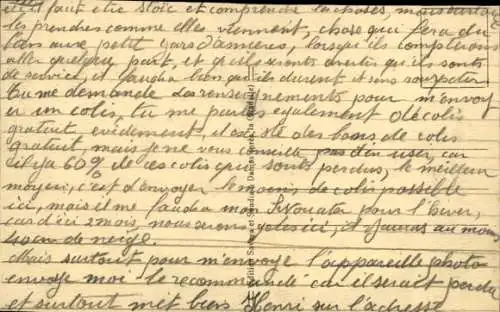 et il faut être stoïc et comprendre la choses, mais surtout
les prendres comme elles viennent, chose qui fera du
bien aux petit gars d'Asnieres, lorsqu'ils compterons
aller quelque part, et qu'ils seronts avertis qu'ils sonts
de service, et faudra bien qu'ils durent et sans rouspeter
Tu me demande des renseignements pour m'envoyer
un colis, tu me parles également de colis
gratuit, évidement, il existe des bons de colis
gratuit, mais je ne vous conseille pas d'en user, car
il y a 60% de ces colis qui sonts perdus, le meilleur
moyen, c'est d'envoyer le moins de colis possible
ici, mais il me faudra mon pour l'hiver,
car d'ici 2 mois, nous serons gelés ici, et j'aurais au moins
de neige.
Mais surtout pour m'envoyé l'appareille photo
envoye moi le recommandé car il serait perdu
et surtout met bien Henri sur l'adresse